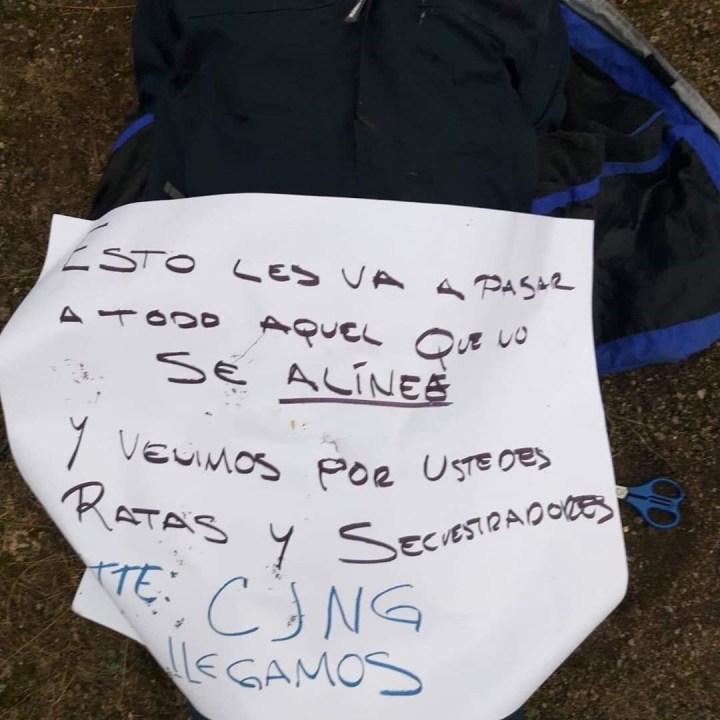 ESTO LES VA A PASAR
A TODO AQUEL QUE NO
SE ALÍNEE
Y VENIMOS POR USTEDES
RATAS Y SECUESTRADORES
ATTE. CJNG
LLEGAMOS